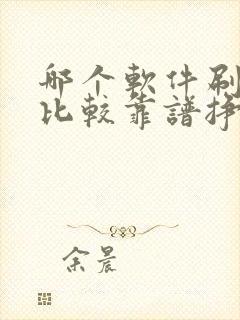 哪个軟件刷
比較靠譜掙
余晨